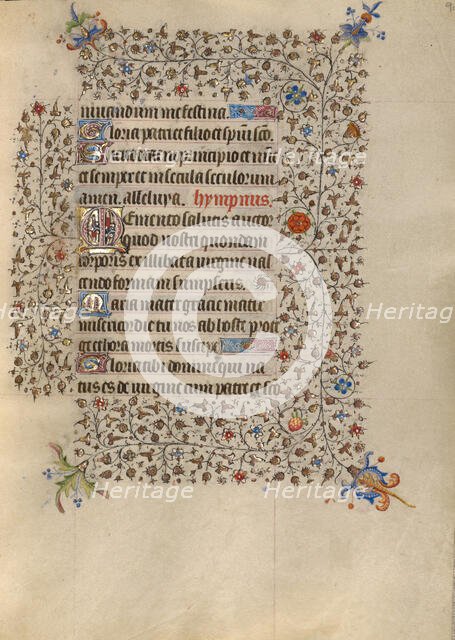 iuvandum me festina
Gloria patri et filio et spiritui sco
Sicut erat in principio et nu
et semper et in secula seculorum
amen. alleluya. hympnus.
Memento salutis auctor
quod nostri quondam
corporis ex illibata virgine nas
cendo formam sumpseris
Maria mater gracie mater
misericordie tu nos ab hoste prote
ge et hora mortis suscipe
Gloria tibi domine qui na
tus es de virgine cum patre et sco
Heritage Heritage Heritage
Heritage Heritage Heritage
Heritage Heritage Heritage